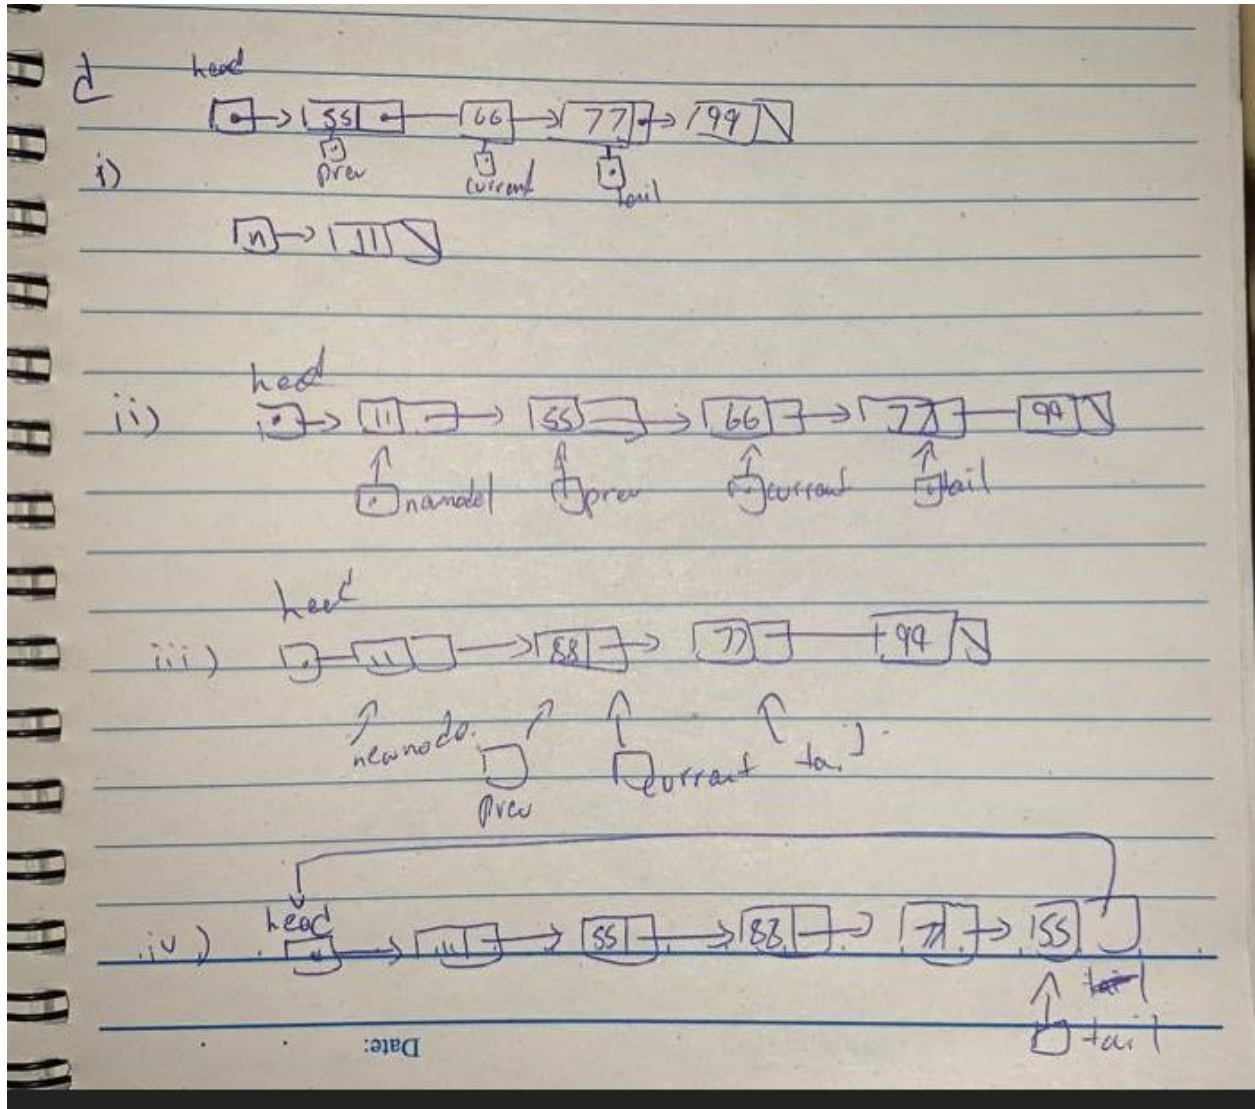 d head
55 66 77 99
i) prev current tail
n 11
head
ii) 11 55 66 77 99
prev current tail
head
iii) 11 88 77 99
newnode.
current tail
prev
head
iv) 11 55 88 77 55
tail
Date: